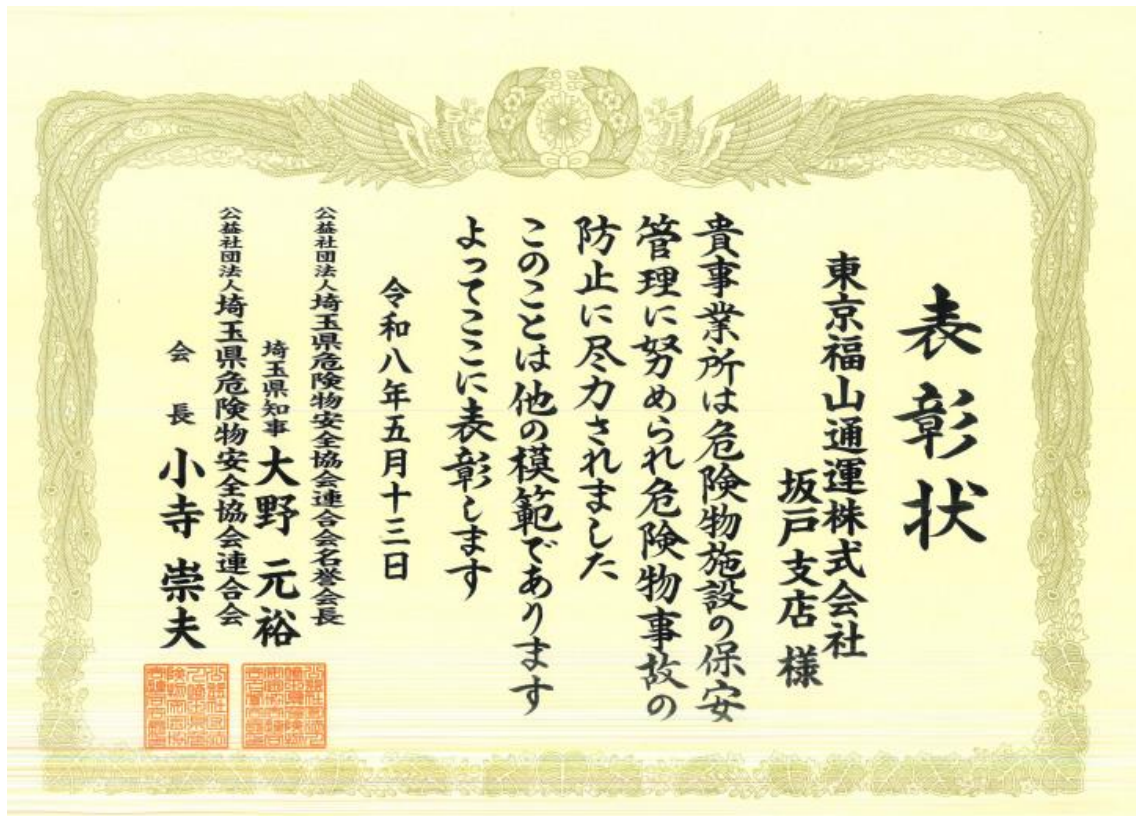 表彰状
東京福山通運株式会社
坂戸支店 様
貴事業所は危険物施設の保安
管理に努められ危険物事故の
防止に尽力されました
このことは他の模範であります
よってここに表彰します
令和八年五月十三日
公益社団法人埼玉県危険物安全協会連合会名誉会長
埼玉県知事 大野元裕
公益社団法人埼玉県危険物安全協会連合会
会長 小寺崇夫